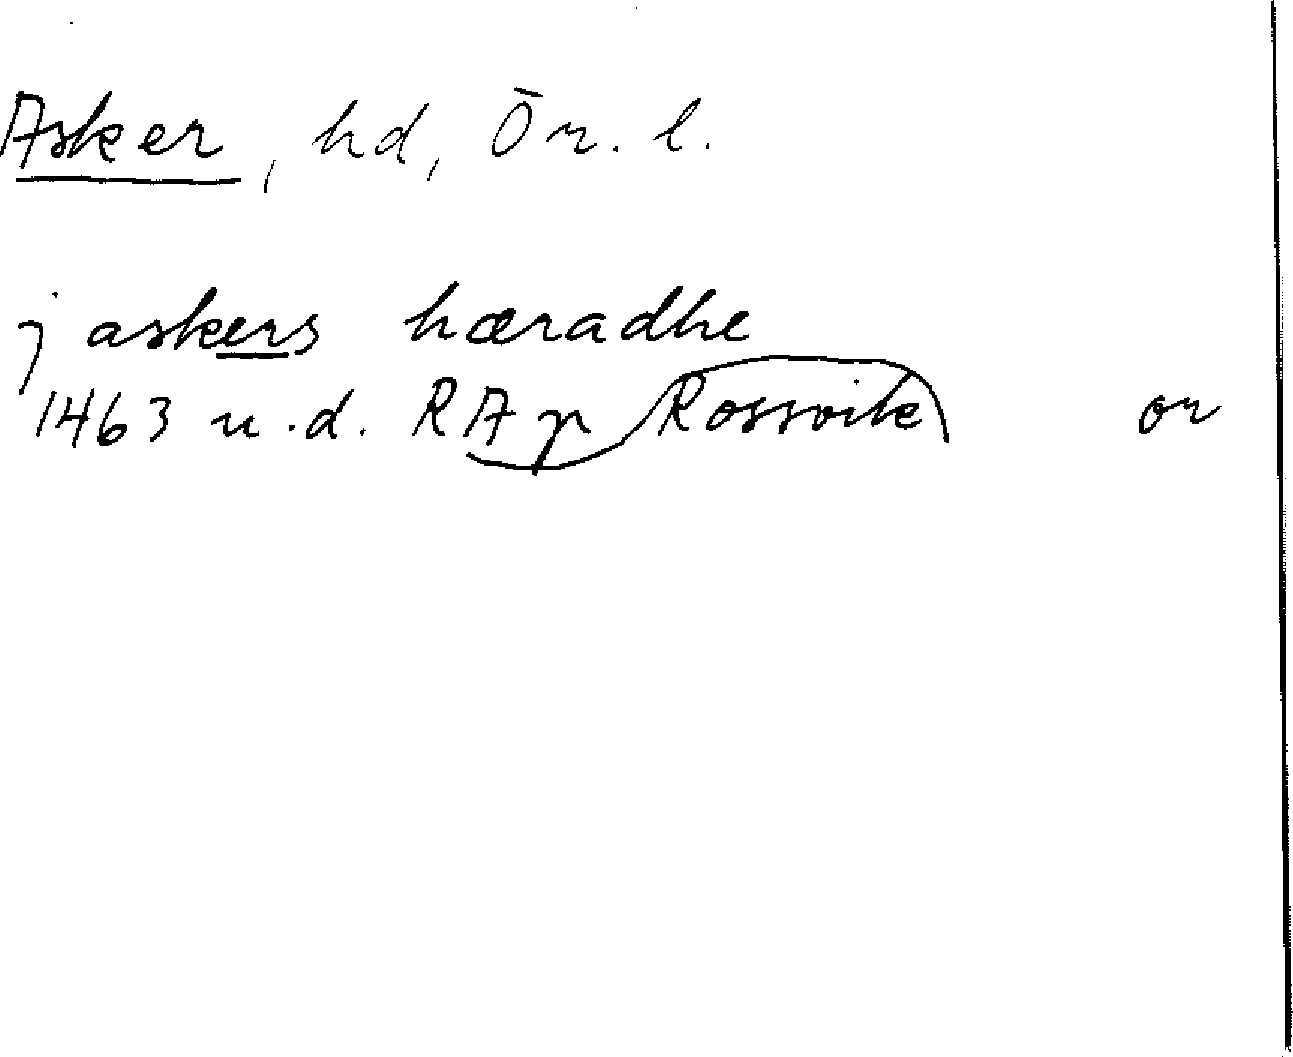 Asker, hd, Ör. l.
j askers hæradhe
1463 u.d. RA p Rossvik or